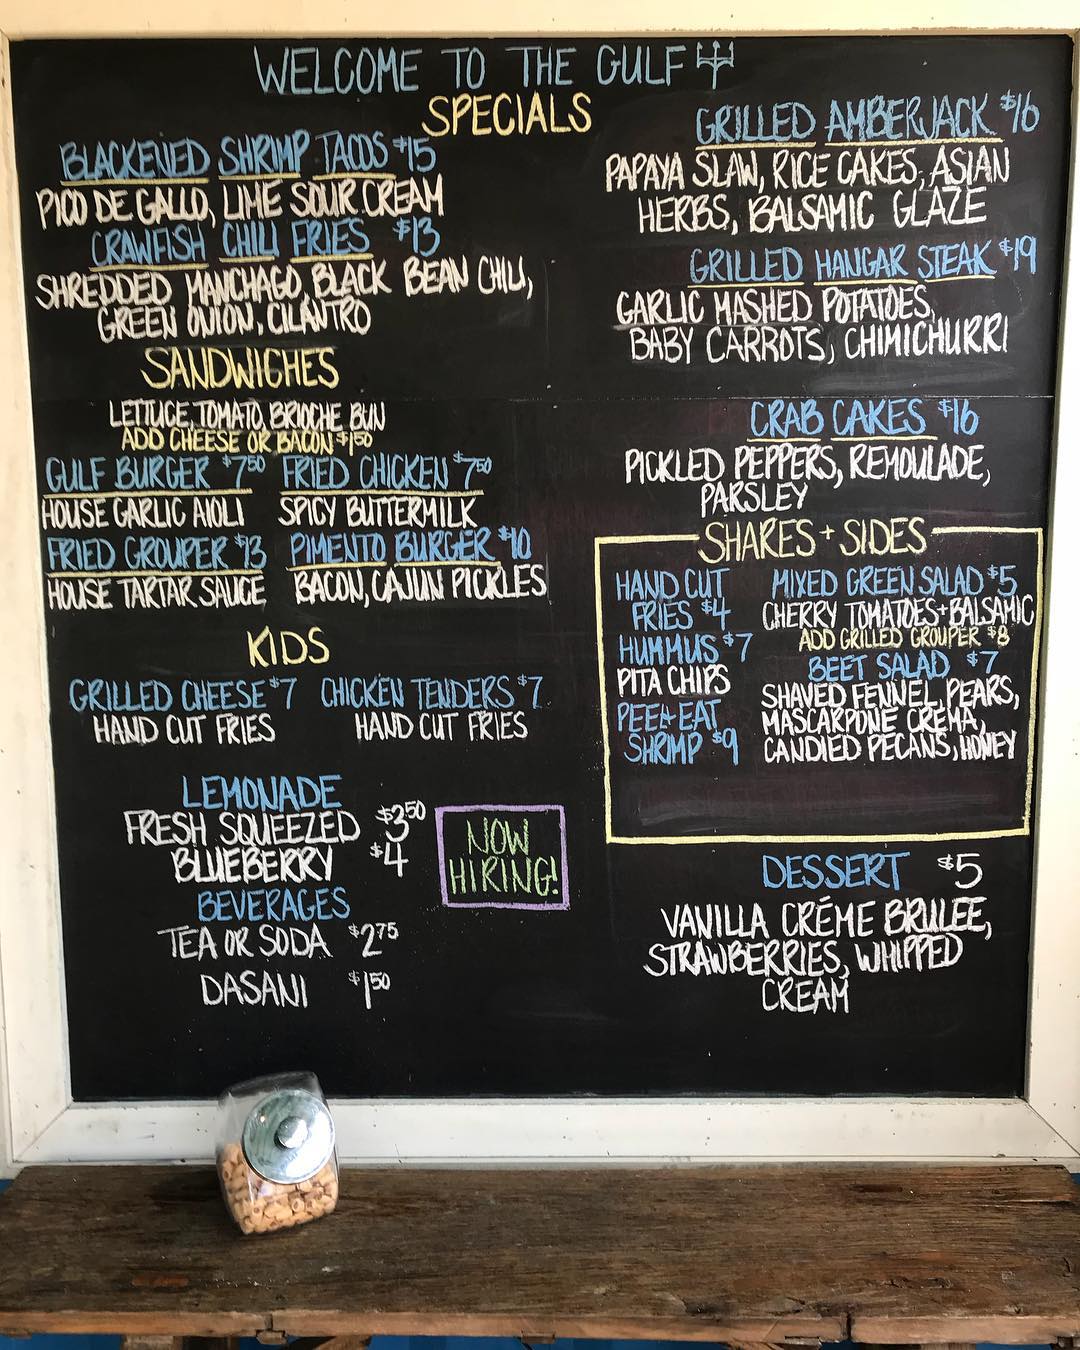 WELCOME TO THE GULF
SPECIALS
BLACKENED SHRIMP TACOS $15
PICO DE GALLO, LIME SOUR CREAM
CRAWFISH CHILI FRIES $13
SHREDDED MANCHAGO, BLACK BEAN CHILI,
GREEN ONION, CILANTRO
GRILLED AMBERJACK $16
PAPAYA SLAW, RICE CAKES, ASIAN
HERBS, BALSAMIC GLAZE
GRILLED HANGAR STEAK $19
GARLIC MASHED POTATOES,
BABY CARROTS, CHIMICHURRI
CRAB CAKES $16
PICKLED PEPPERS, REMOULADE,
PARSLEY
SANDWICHES
LETTUCE, TOMATO, BRIOCHE BUN
ADD CHEESE OR BACON $1.50
GULF BURGER $7.50
HOUSE GARLIC AIOLI
FRIED CHICKEN $7.50
SPICY BUTTERMILK
FRIED GROUPER $13
HOUSE TARTAR SAUCE
PIMENTO BURGER $10
BACON, CAJUN PICKLES
KIDS
GRILLED CHEESE $7
HAND CUT FRIES
CHICKEN TENDERS $7
HAND CUT FRIES
SHARES + SIDES
HAND CUT
FRIES $4
HUMMUS $7
PITA CHIPS
PEEL + EAT
SHRIMP $9
MIXED GREEN SALAD $5
CHERRY TOMATOES + BALSAMIC
ADD GRILLED GROUPER $8
BEET SALAD $7
SHAVED FENNEL, PEARS,
MASCARPONE CREMA,
CANDIED PECANS, HONEY
LEMONADE
FRESH SQUEEZED $3.50
BLUEBERRY $4
BEVERAGES
TEA OR SODA $2.75
DASANI $1.50
NOW
HIRING!
DESSERT $5
VANILLA CRÉME BRULEE,
STRAWBERRIES, WHIPPED
CREAM